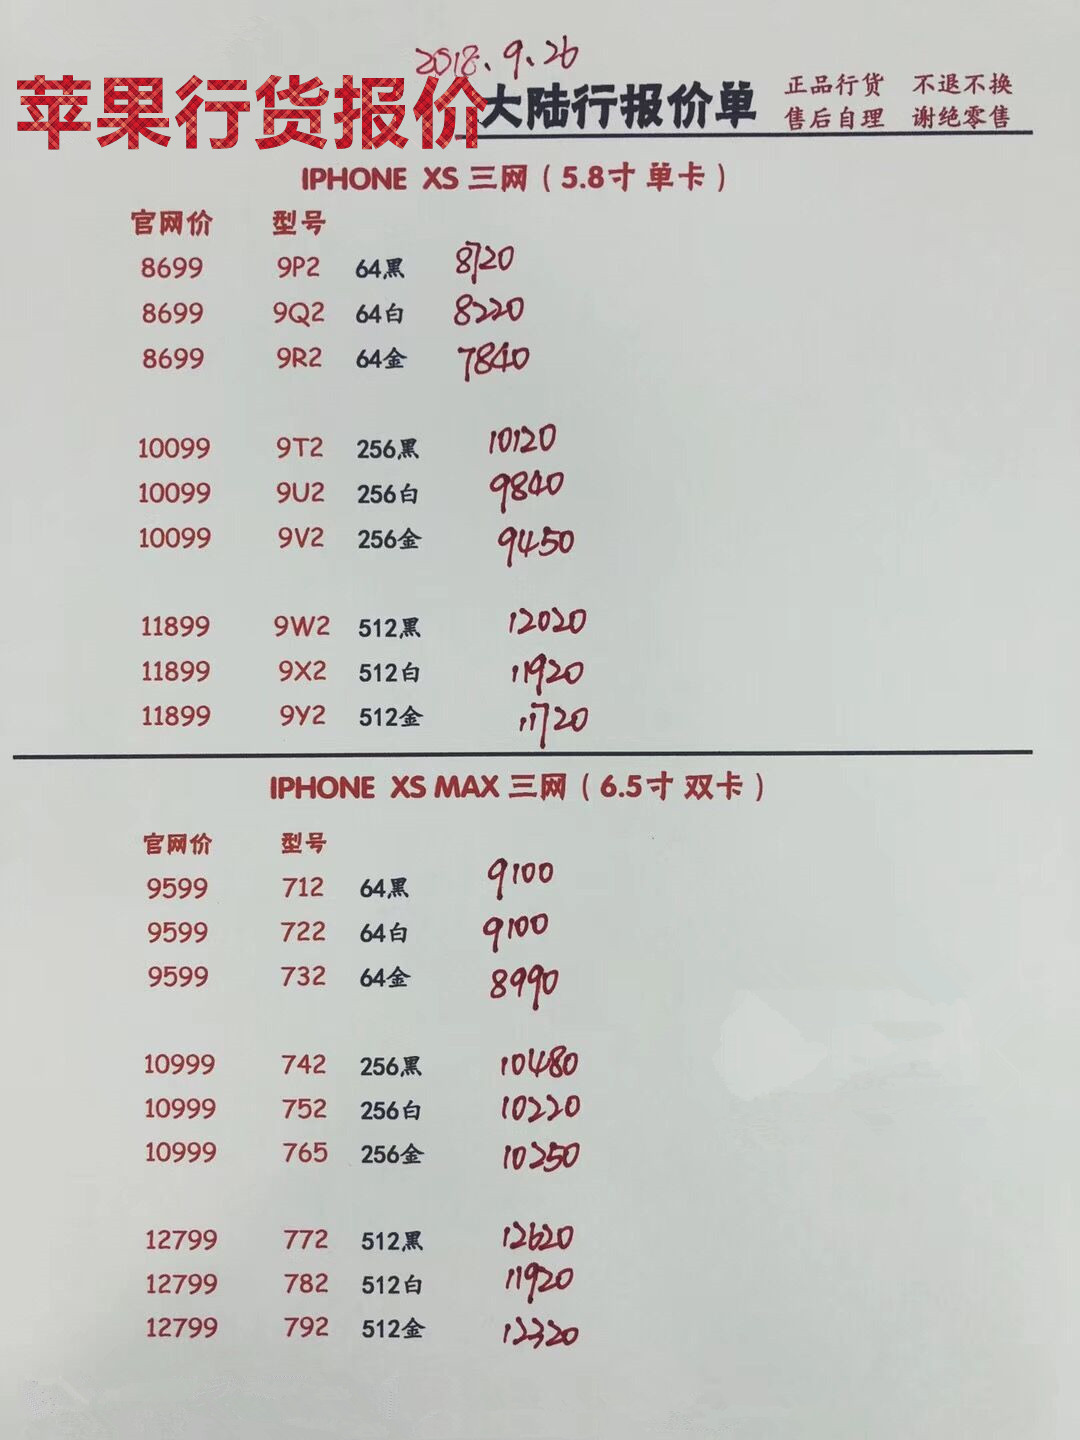 2018.9.26
苹果行货报价
大陆行报价单
正品行货 不退不换
售后自理 谢绝零售
IPHONE XS 三网（5.8寸 单卡）
官网价 型号
8699 9P2 64黑 8720
8699 9Q2 64白 8220
8699 9R2 64金 7840
10099 9T2 256黑 10120
10099 9U2 256白 9840
10099 9V2 256金 9450
11899 9W2 512黑 12020
11899 9X2 512白 11920
11899 9Y2 512金 11720
IPHONE XS MAX 三网（6.5寸 双卡）
官网价 型号
9599 712 64黑 9100
9599 722 64白 9100
9599 732 64金 8990
10999 742 256黑 10480
10999 752 256白 10220
10999 765 256金 10250
12799 772 512黑 12620
12799 782 512白 11920
12799 792 512金 12320